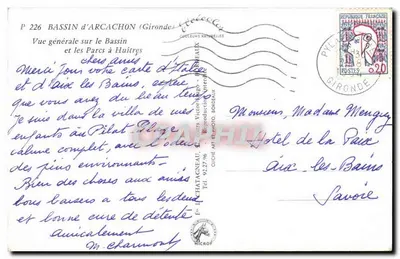 P 226 BASSIN d'ARCACHON (Gironde)
Vue générale sur le Bassin
et les Parcs à Huîtres
chers amis
Merci pour votre carte d'Italie
et d'Aix les Bains, espère
que vous avez du beau temps
je suis dans la villa de mes
enfants au Pilat Plage
calme complet, avec
des pins environnant.
Bien des choses aux amis
bons baisers à tous les deux
et bonne cure de détente
Amicalement
RÉPUBLIQUE FRANÇAISE
POSTES 0,20
GIRONDE
Monsieur, Madame
Hotel de la Paix
Aix-les-Bains
Savoie